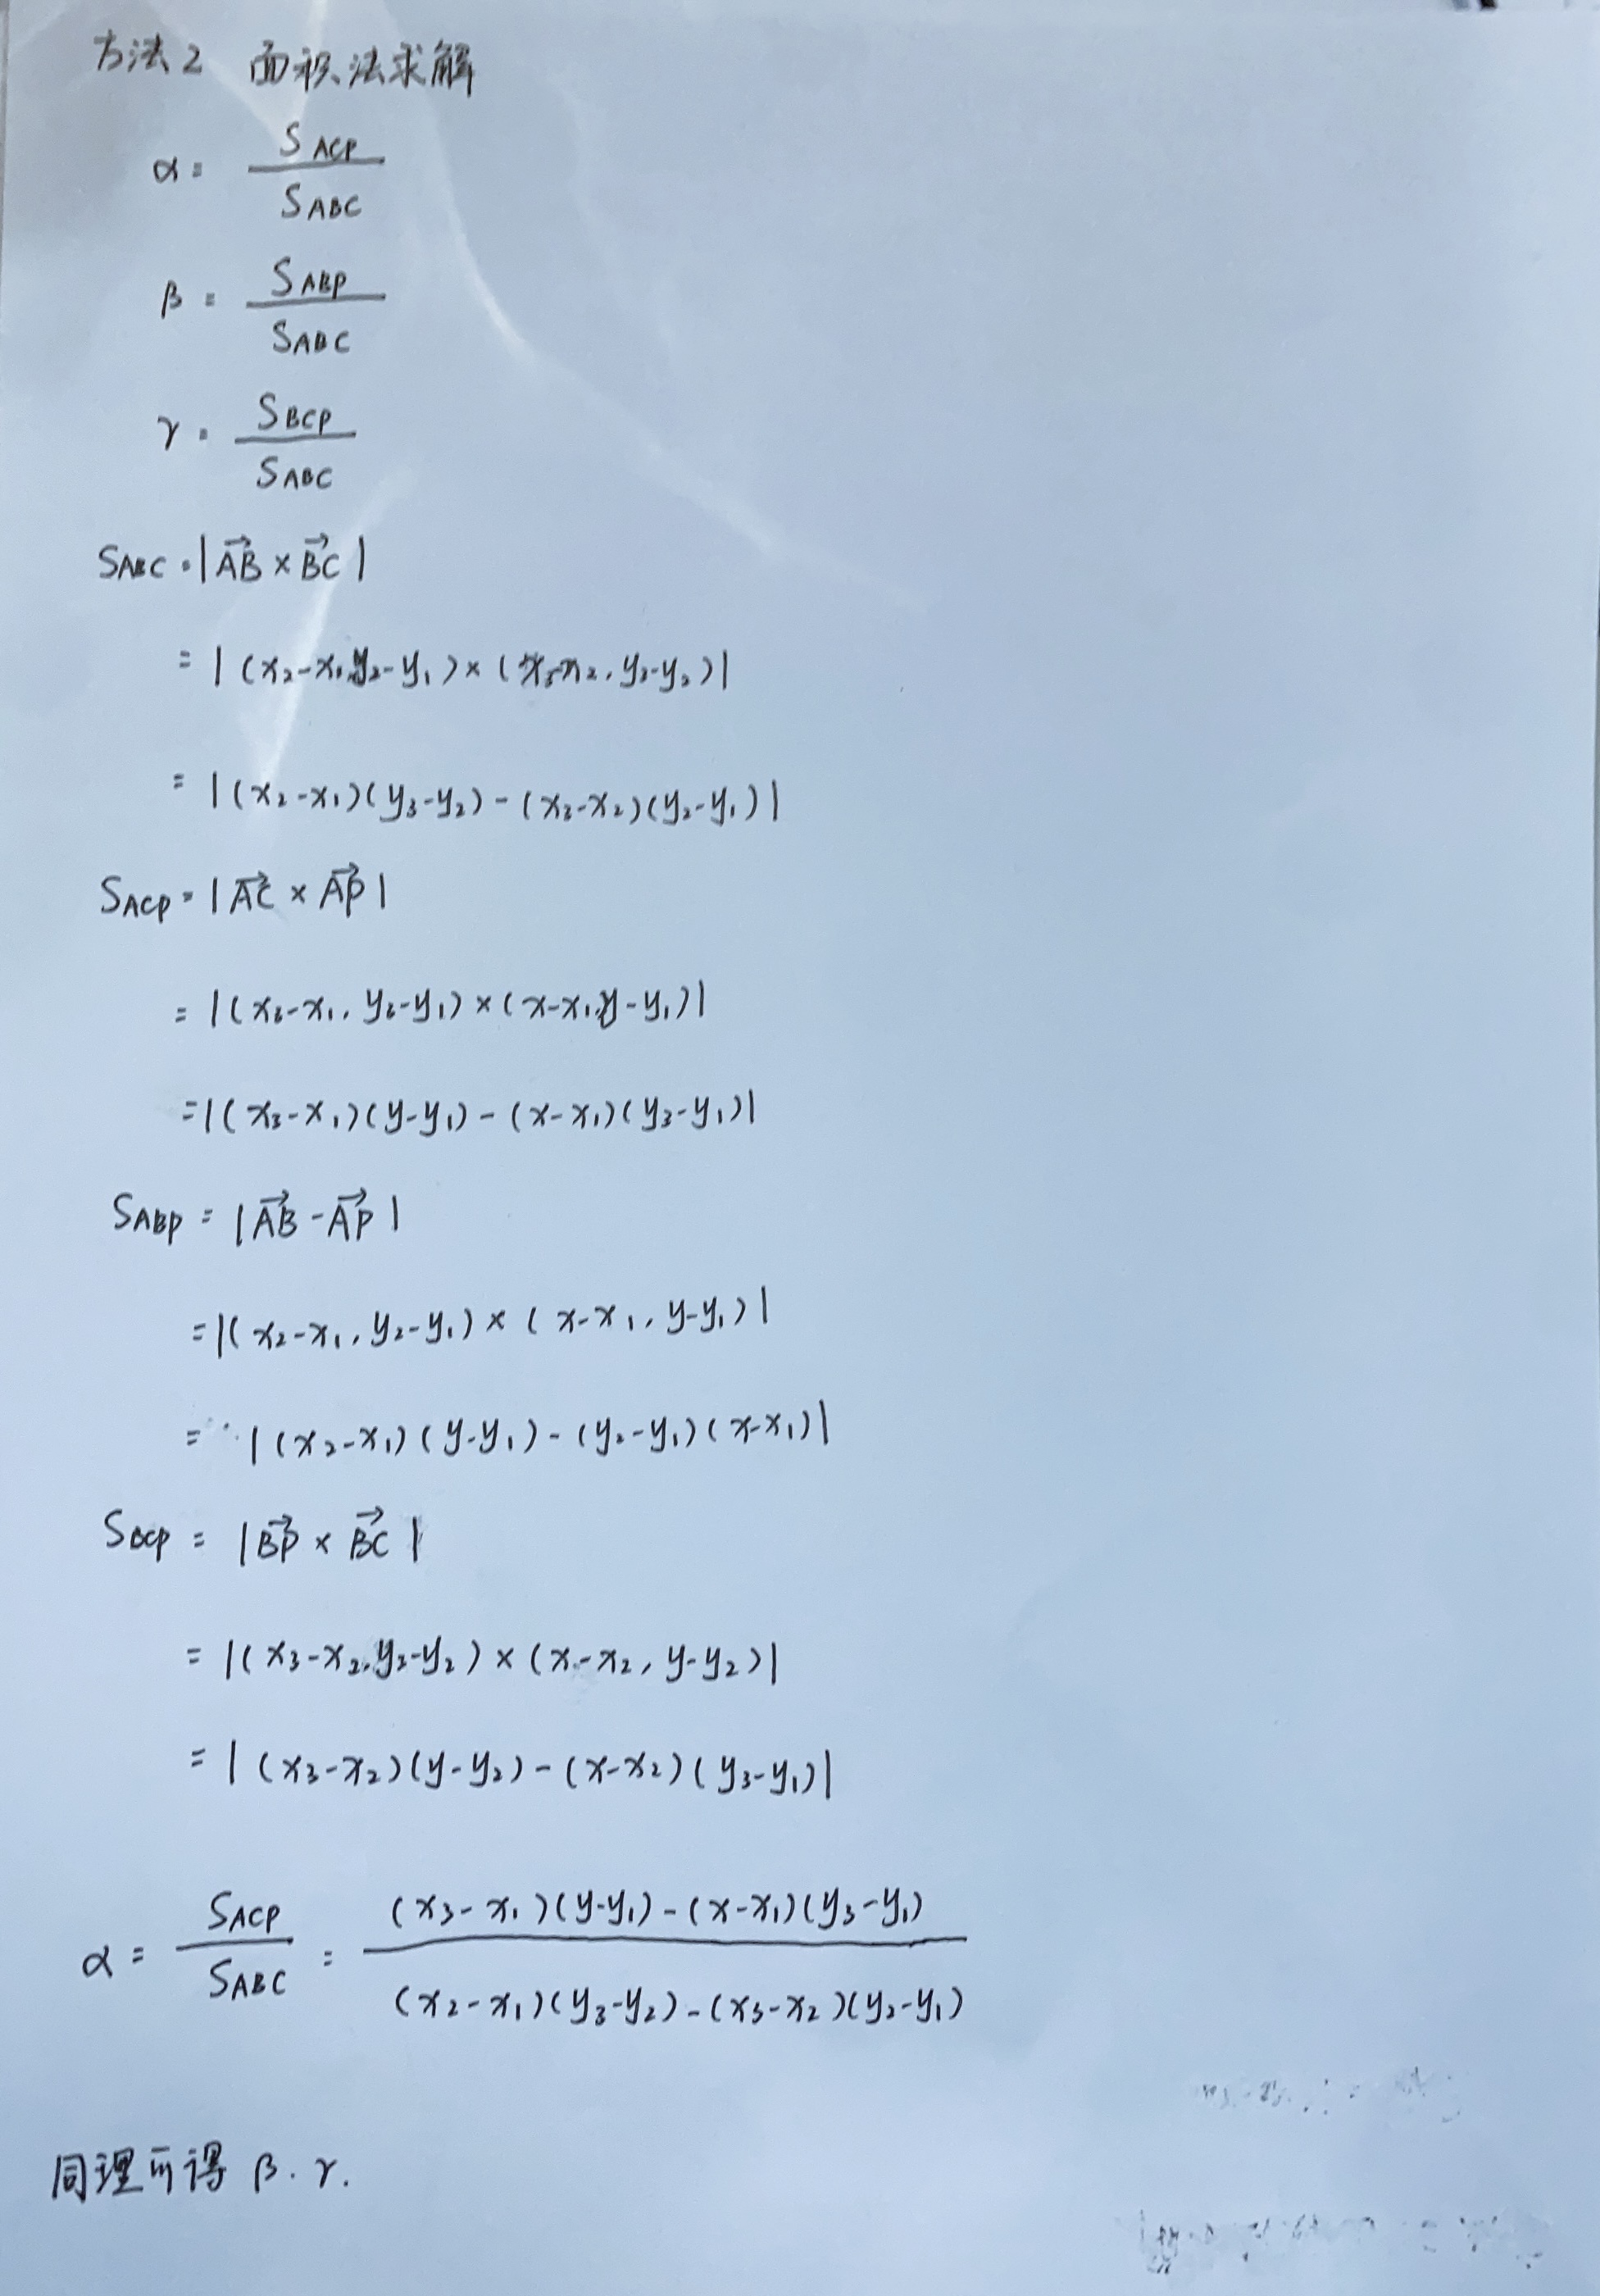 方法2 面积法求解
α = S_ACP / S_ABC
β = S_ABP / S_ABC
γ = S_BCP / S_ABC
S_ABC = |\vec{AB} × \vec{BC}|
= |(x₂-x₁, y₂-y₁) × (x₃-x₂, y₃-y₂)|
= |(x₂-x₁)(y₃-y₂) - (x₃-x₂)(y₂-y₁)|
S_ACP = |\vec{AC} × \vec{AP}|
= |(x₃-x₁, y₃-y₁) × (x-x₁, y-y₁)|
= |(x₃-x₁)(y-y₁) - (x-x₁)(y₃-y₁)|
S_ABP = |\vec{AB} - \vec{AP}|
= |(x₂-x₁, y₂-y₁) × (x-x₁, y-y₁)|
= |(x₂-x₁)(y-y₁) - (y₂-y₁)(x-x₁)|
S_BCP = |\vec{BP} × \vec{BC}|
= |(x₃-x₂, y₃-y₂) × (x-x₂, y-y₂)|
= |(x₃-x₂)(y-y₂) - (x-x₂)(y₃-y₁)|
α = S_ACP / S_ABC = ((x₃-x₁)(y-y₁) - (x-x₁)(y₃-y₁)) / ((x₂-x₁)(y₃-y₂) - (x₃-x₂)(y₂-y₁))
同理可得 β. γ.